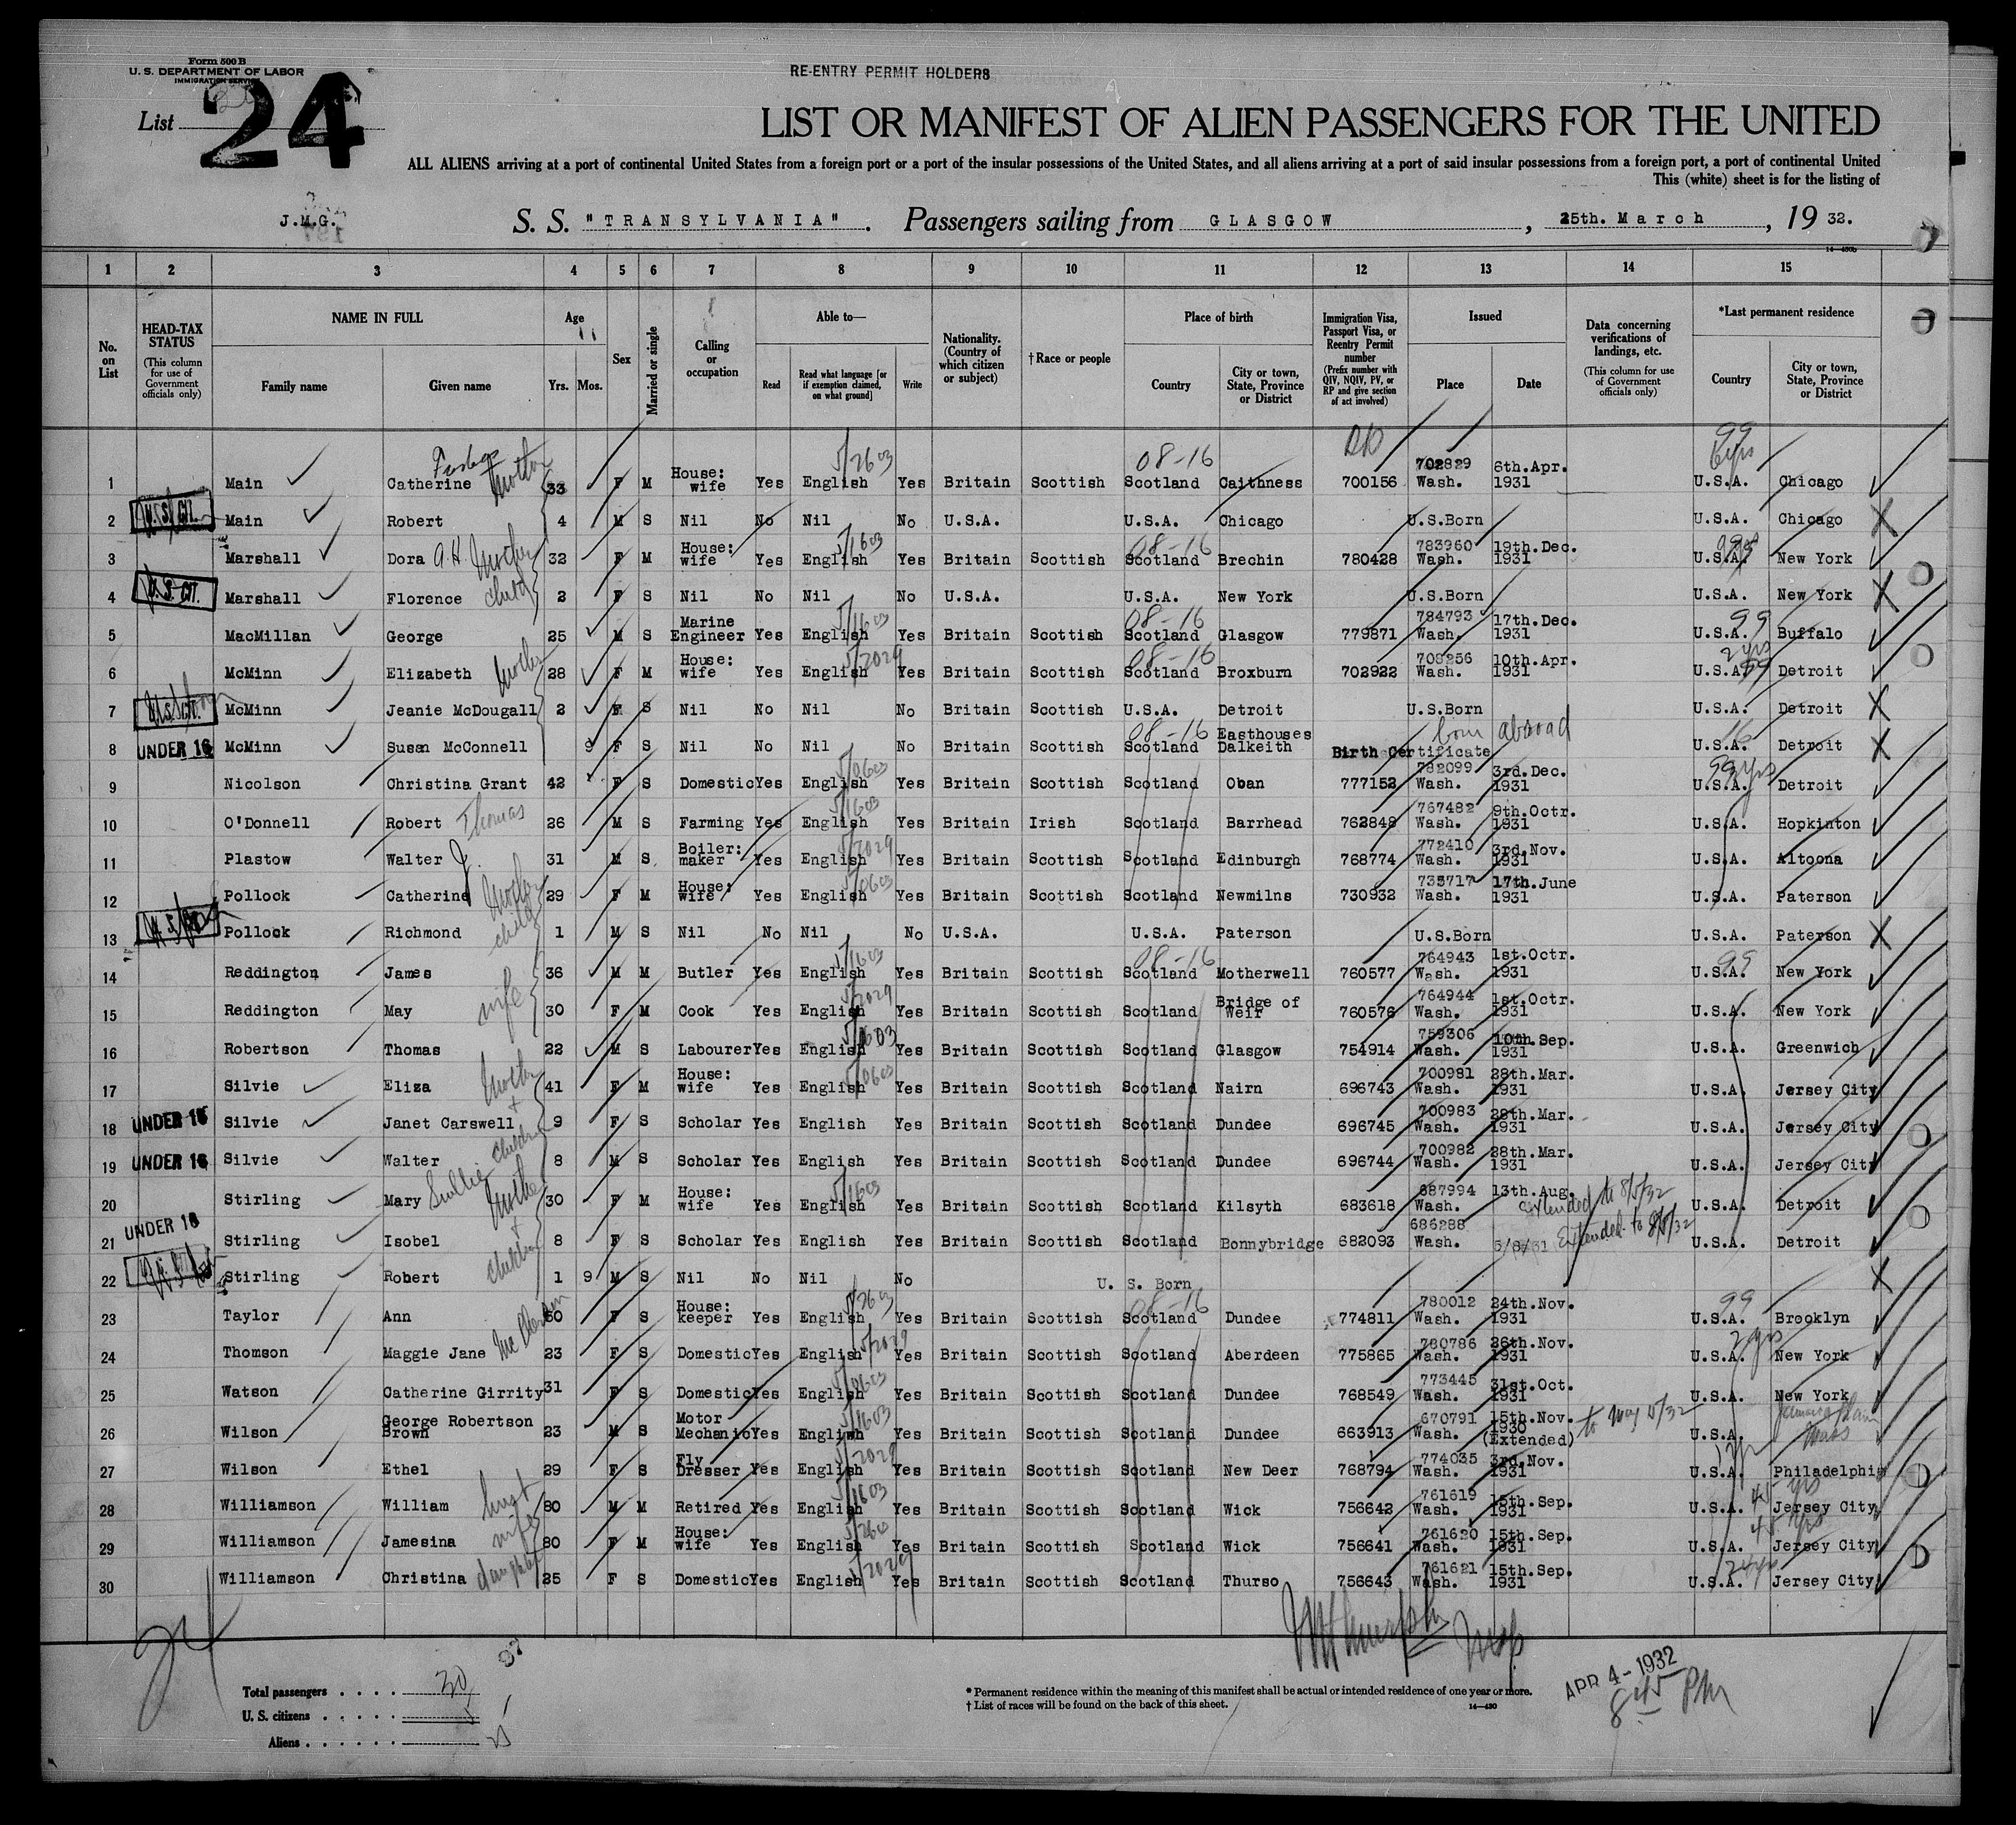 Form 500 B
U. S. DEPARTMENT OF LABOR
IMMIGRATION SERVICE
RE-ENTRY PERMIT HOLDERS
List 24
LIST OR MANIFEST OF ALIEN PASSENGERS FOR THE UNITED
ALL ALIENS arriving at a port of continental United States from a foreign port or a port of the insular possessions of the United States, and all aliens arriving at a port of said insular possessions from a foreign port, a port of continental United
This (white) sheet is for the listing of
J.M.G. S. S. "TRANSYLVANIA". Passengers sailing from GLASGOW, 25th. March, 19 32.
1 2 3 4 5 6 7 8 9 10 11 12 13 14 15
No. on List
HEAD-TAX STATUS (This column for use of Government officials only)
NAME IN FULL Family name Given name
Age Yrs. Mos.
Sex
Married or single
Calling or occupation
Able to— Read Read what language [or if exemption claimed, on what ground] Write
Nationality. (Country of which citizen or subject)
†Race or people
Place of birth Country City or town, State, Province or District
Immigration Visa, Passport Visa, or Reentry Permit number (Prefix number with QIV, NQIV, PV, or RP and give section of act involved)
Issued Place Date
Data concerning verifications of landings, etc. (This column for use of Government officials only)
*Last permanent residence Country City or town, State, Province or District
1 Main Catherine Mother 33 F M House: wife Yes English Yes Britain Scottish Scotland 08-16 Caithness 700156 702829 Wash. 6th.Apr. 1931 U.S.A. 99 Chicago
2 U.S. CIT. Main Robert 4 M S Nil No Nil No U.S.A. U.S.A. Chicago U.S.Born U.S.A. Chicago
3 Marshall Dora A.H. Mother 32 F M House: wife Yes English Yes Britain Scottish Scotland 08-16 Brechin 780428 783960 Wash. 19th.Dec. 1931 U.S.A. New York
4 U.S. CIT. Marshall Florence child 2 F S Nil No Nil No U.S.A. U.S.A. New York U.S.Born U.S.A. New York
5 MacMillan George 25 M S Marine Engineer Yes English Yes Britain Scottish Scotland 08-16 Glasgow 779871 784793 Wash. 17th.Dec. 1931 U.S.A. 99 Buffalo
6 McMinn Elizabeth Mother 28 F M House: wife Yes English Yes Britain Scottish Scotland 08-16 Broxburn 702922 708256 Wash. 10th.Apr. 1931 U.S.A. 2 yrs 99 Detroit
7 U.S. CIT. McMinn Jeanie McDougall 2 F S Nil No Nil No Britain Scottish U.S.A. Detroit U.S.Born U.S.A. Detroit
8 UNDER 16 McMinn Susan McConnell 9 F S Nil No Nil No Britain Scottish Scotland 08-16 Easthouses Dalkeith Birth Certificate born abroad U.S.A. Detroit
9 Nicolson Christina Grant 42 F S Domestic Yes English Yes Britain Scottish Scotland Oban 777152 782099 Wash. 3rd.Dec. 1931 U.S.A. Detroit
10 O'Donnell Robert Thomas 26 M S Farming Yes English Yes Britain Irish Scotland Barrhead 762848 767482 Wash. 9th.Octr. 1931 U.S.A. Hopkinton
11 Plastow Walter J. 31 M S Boiler: maker Yes English Yes Britain Scottish Scotland Edinburgh 768774 772410 Wash. 3rd.Nov. 1931 U.S.A. Altoona
12 Pollock Catherine Mother 29 F M House: wife Yes English Yes Britain Scottish Scotland Newmilns 730932 735717 Wash. 17th.June 1931 U.S.A. Paterson
13 Pollock Richmond child 1 M S Nil No Nil No U.S.A. U.S.A. Paterson U.S.Born U.S.A. Paterson
14 Reddington James 36 M M Butler Yes English Yes Britain Scottish Scotland 08-16 Motherwell 760577 764943 Wash. 1st.Octr. 1931 U.S.A. 99 New York
15 Reddington May wife 30 F M Cook Yes English Yes Britain Scottish Scotland Bridge of Weir 760576 764944 Wash. 1st.Octr. 1931 U.S.A. New York
16 Robertson Thomas 22 M S Labourer Yes English Yes Britain Scottish Scotland Glasgow 754914 759306 Wash. 10th.Sep. 1931 U.S.A. Greenwich
17 Silvie Eliza Mother + 41 F M House: wife Yes English Yes Britain Scottish Scotland Nairn 696743 700981 Wash. 28th.Mar. 1931 U.S.A. Jersey City
18 UNDER 16 Silvie Janet Carswell 9 F S Scholar Yes English Yes Britain Scottish Scotland Dundee 696745 700983 Wash. 28th.Mar. 1931 U.S.A. Jersey City
19 UNDER 16 Silvie Walter 8 M S Scholar Yes English Yes Britain Scottish Scotland Dundee 696744 700982 Wash. 28th.Mar. 1931 U.S.A. Jersey City
20 Stirling Mary Mother + 30 F M House: wife Yes English Yes Britain Scottish Scotland Kilsyth 683618 687994 Wash. 13th.Aug. Extended to 8/5/32 U.S.A. Detroit
21 UNDER 16 Stirling Isobel children 8 F S Scholar Yes English Yes Britain Scottish Scotland Bonnybridge 682093 686288 Wash. 5/8/31 Extended to 8/5/32 U.S.A. Detroit
22 Stirling Robert 1 9 M S Nil No Nil No U. S. Born
23 Taylor Ann 60 F S House: keeper Yes English Yes Britain Scottish Scotland 08-16 Dundee 774811 780012 Wash. 24th.Nov. 1931 U.S.A. 99 Brooklyn
24 Thomson Maggie Jane 23 F S Domestic Yes English Yes Britain Scottish Scotland Aberdeen 775865 780786 Wash. 26th.Nov. 1931 U.S.A. 2 yrs New York
25 Watson Catherine Girrity 31 F S Domestic Yes English Yes Britain Scottish Scotland Dundee 768549 773445 Wash. 31st.Oct. 1931 U.S.A. New York
26 Wilson George Robertson Brown 23 M S Motor Mechanic Yes Engliwh Yes Britain Scottish Scotland Dundee 663913 670791 Wash. 15th.Nov. 1930 (Extended) to May 15/32 U.S.A. Jamaica Plain Mass
27 Wilson Ethel 29 F S Fly Dresser Yes English Yes Britain Scottish Scotland New Deer 768794 774035 Wash. 3rd.Nov. 1931 U.S.A. Philadelphia
28 Williamson William hust 80 M M Retired Yes English Yes Britain Scottish Scotland Wick 756642 761619 Wash. 15th.Sep. 1931 U.S.A. 45 yrs Jersey City
29 Williamson Jamesina wife 80 F M House: wife Yes English Yes Britain Scottish Scotland Wick 756641 761620 Wash. 15th.Sep. 1931 U.S.A. 45 yrs Jersey City
30 Williamson Christina daughter 35 F S Domestic Yes English Yes Britain Scottish Scotland Thurso 756643 761621 Wash. 15th.Sep. 1931 U.S.A. 24 yrs Jersey City
24
Total passengers . . . . 30
U. S. citizens . . . . . 5
Aliens . . . . . . 25
* Permanent residence within the meaning of this manifest shall be actual or intended residence of one year or more.
† List of races will be found on the back of this sheet.
14—430
APR 4 - 1932
8 45 PM